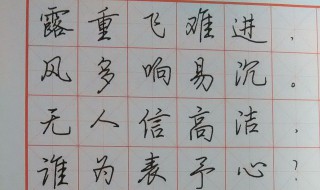 露重飞难进，
风多响易沉。
无人信高洁，
谁为表予心？